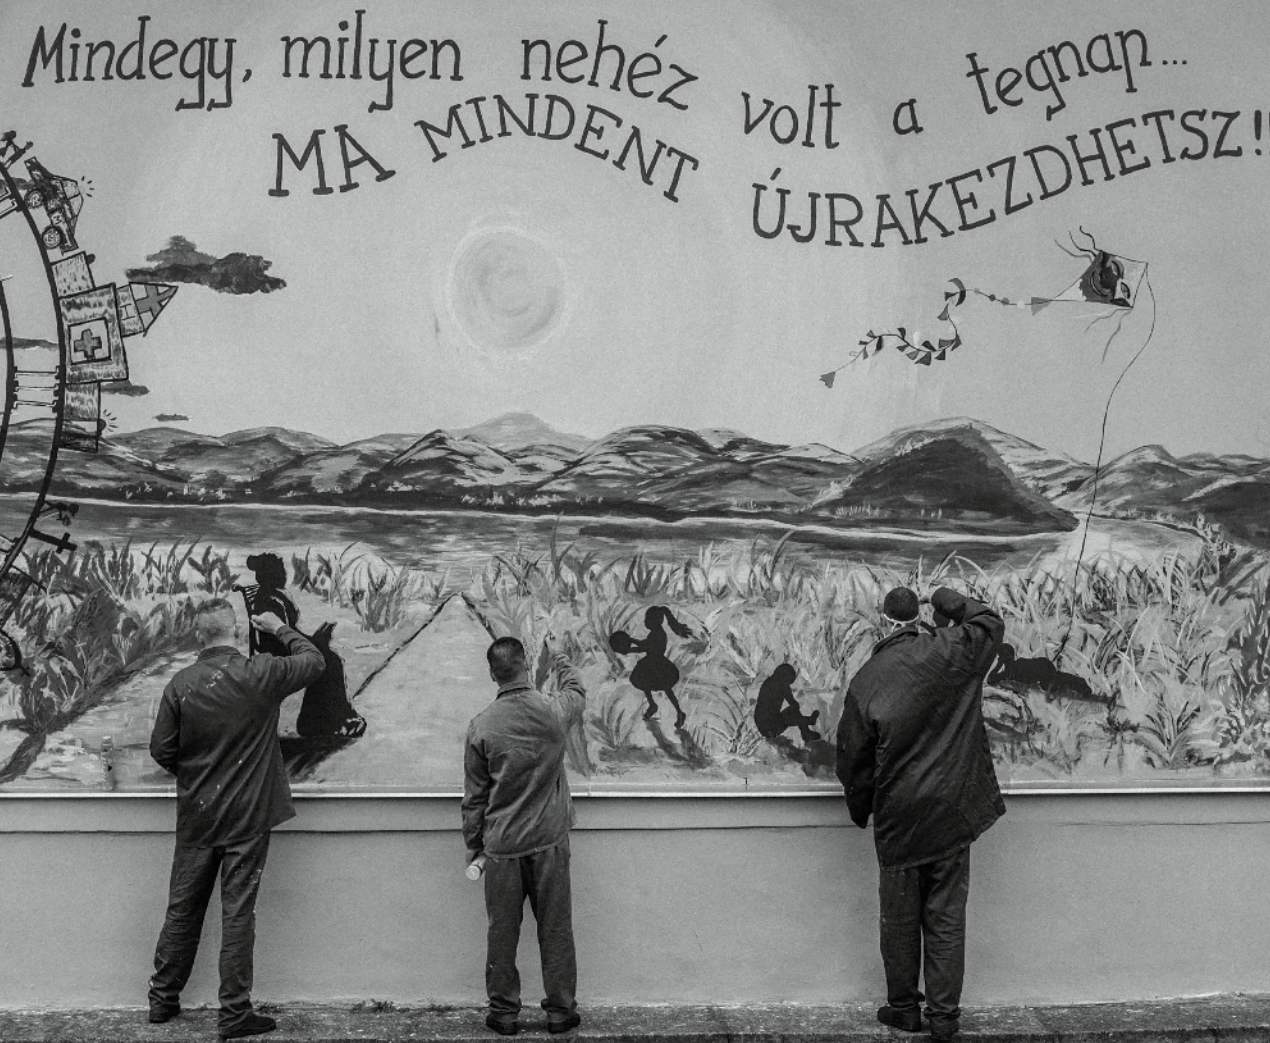 Mindegy, milyen nehéz volt a tegnap...
MA MINDENT ÚJRAKEZDHETSZ!!